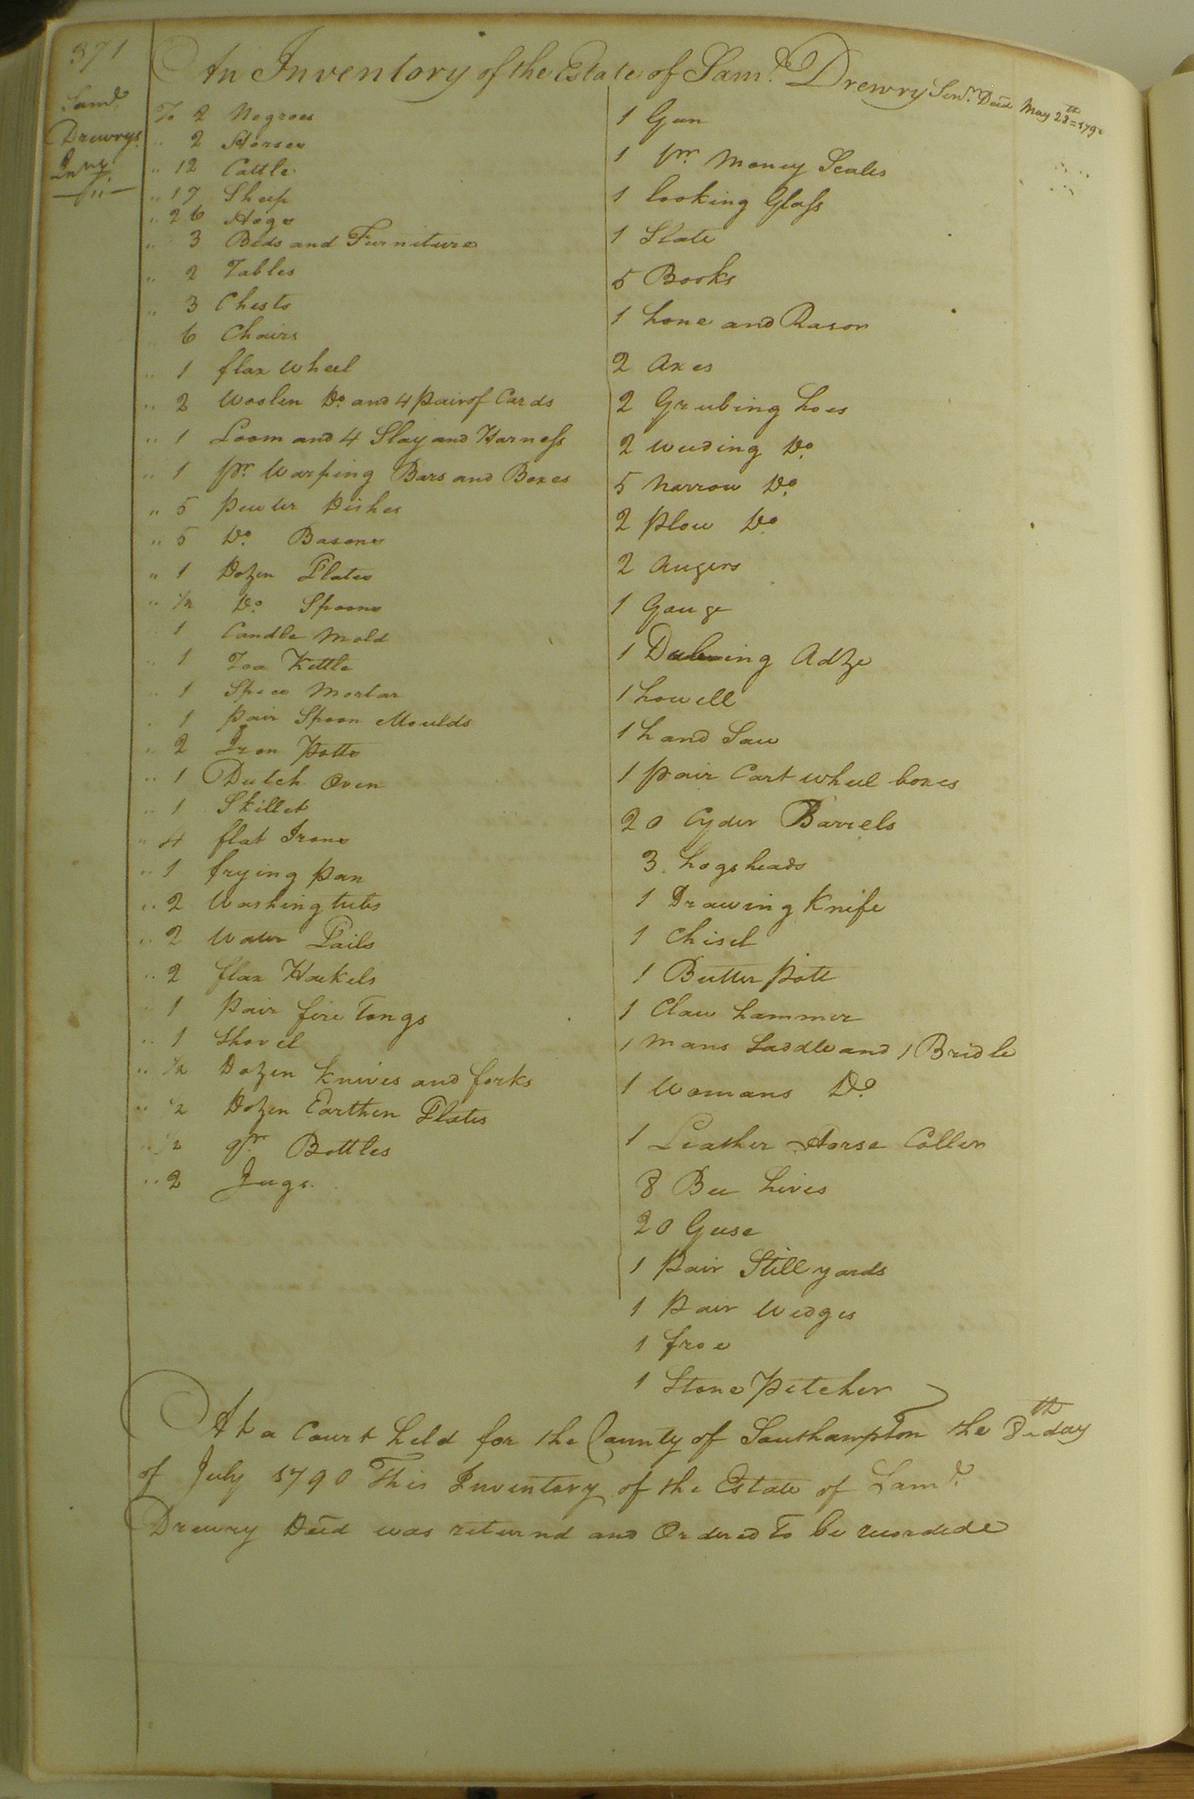 371
Samd.
Drewrys.
Inv.
An Inventory of the Estate of Samd. Drewry Senr. Decd May 28th = 1790
To 2 Negroes
" 2 Horses
" 12 Cattle
" 17 Sheep
" 26 Hogs
" 3 Beds and Furniture
" 2 Tables
" 3 Chests
6 Chairs
" 1 flax wheel
" 2 Woolen Do. and 4 pair of Cards
" 1 Loom and 4 Slay and Harness
" 1 pr. Warping Bars and Boxes
" 5 pewter Dishes
" 5 Do. Basons
" 1 Dozen Plates
" 1/2 Do. Spoons
1 Candle Mold
" 1 Tea Kettle
" 1 Spice Mortar
" 1 pair Spoon Moulds
" 2 Iron Potts
" 1 Dutch Oven
" 1 Skillet
" 4 flat Irons
" 1 frying pan
" 2 Washing tubs
" 2 Water Pails
" 2 flax Hackels
" 1 pair fire Tongs
" 1 Shovel
" 1/2 Dozen knives and forks
" 1/2 Dozen Earthen Plates
" 1/2 gr. Bottles
" 2 Jugs.
1 Gun
1 pr. Money Scales
1 looking Glass
1 Slate
5 Books
1 hone and Rasor
2 Axes
2 Grubing hoes
2 weeding Do.
5 Narrow Do.
2 plow Do.
2 Augers
1 Gauge
1 Adze
1 howell
1 hand Saw
1 pair Cart wheel boxes
20 Cyder Barrels
3 hogsheads
1 Drawing Knife
1 Chisel
1 Butter pott
1 Claw hammer
1 mans Saddle and 1 Bridle
1 Womans Do.
1 Leather Horse Coller
8 Bee hives
20 Geese
1 pair Still yards
1 pair Wedges
1 froe
1 Stone Pitcher
At a Court held for the County of Southampton the 8th day
of July 1790 This Inventory of the Estate of Samd.
Drewry Decd was returnd and Ordered to be recorded